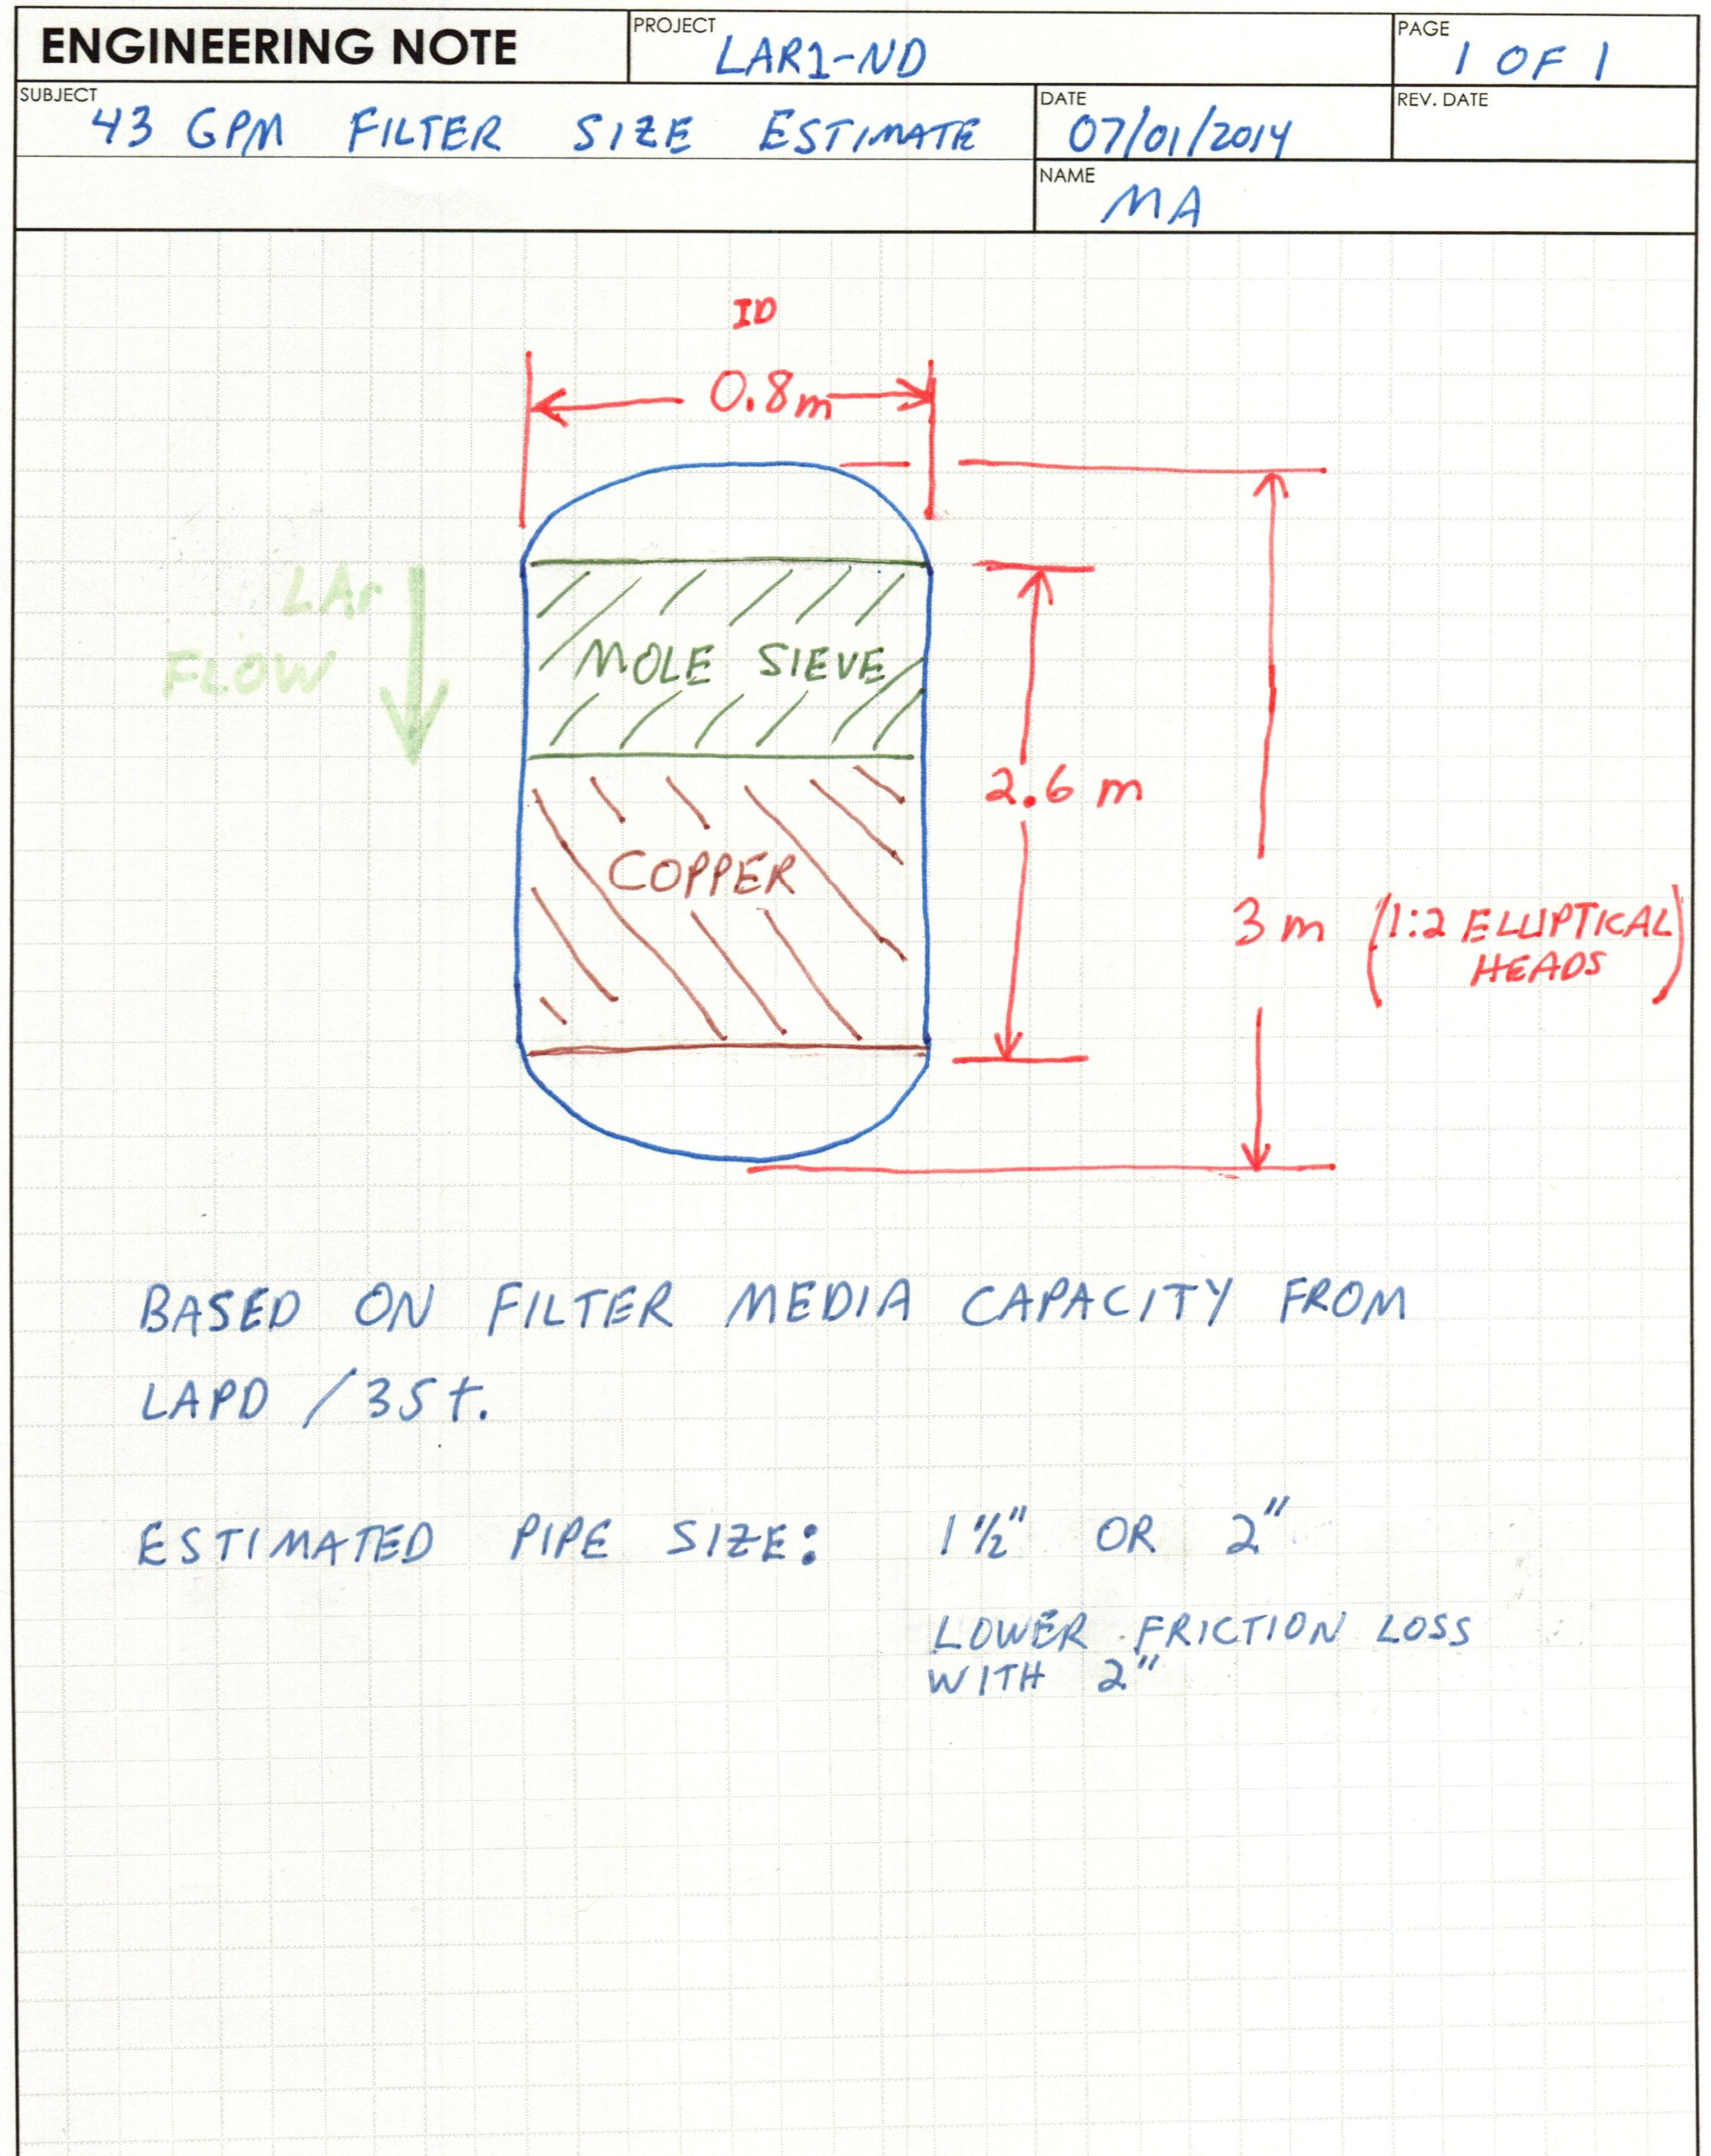 ENGINEERING NOTE
PROJECT
LAR1-ND
PAGE
1 OF 1
SUBJECT
43 GPM FILTER SIZE ESTIMATE
DATE
07/01/2014
REV. DATE
NAME
MA
ID
0.8m
LAr
FLOW
MOLE SIEVE
2.6 m
COPPER
3 m (1:2 ELLIPTICAL
HEADS)
BASED ON FILTER MEDIA CAPACITY FROM
LAPD / 35t.
ESTIMATED PIPE SIZE: 1 1/2" OR 2"
LOWER FRICTION LOSS
WITH 2"